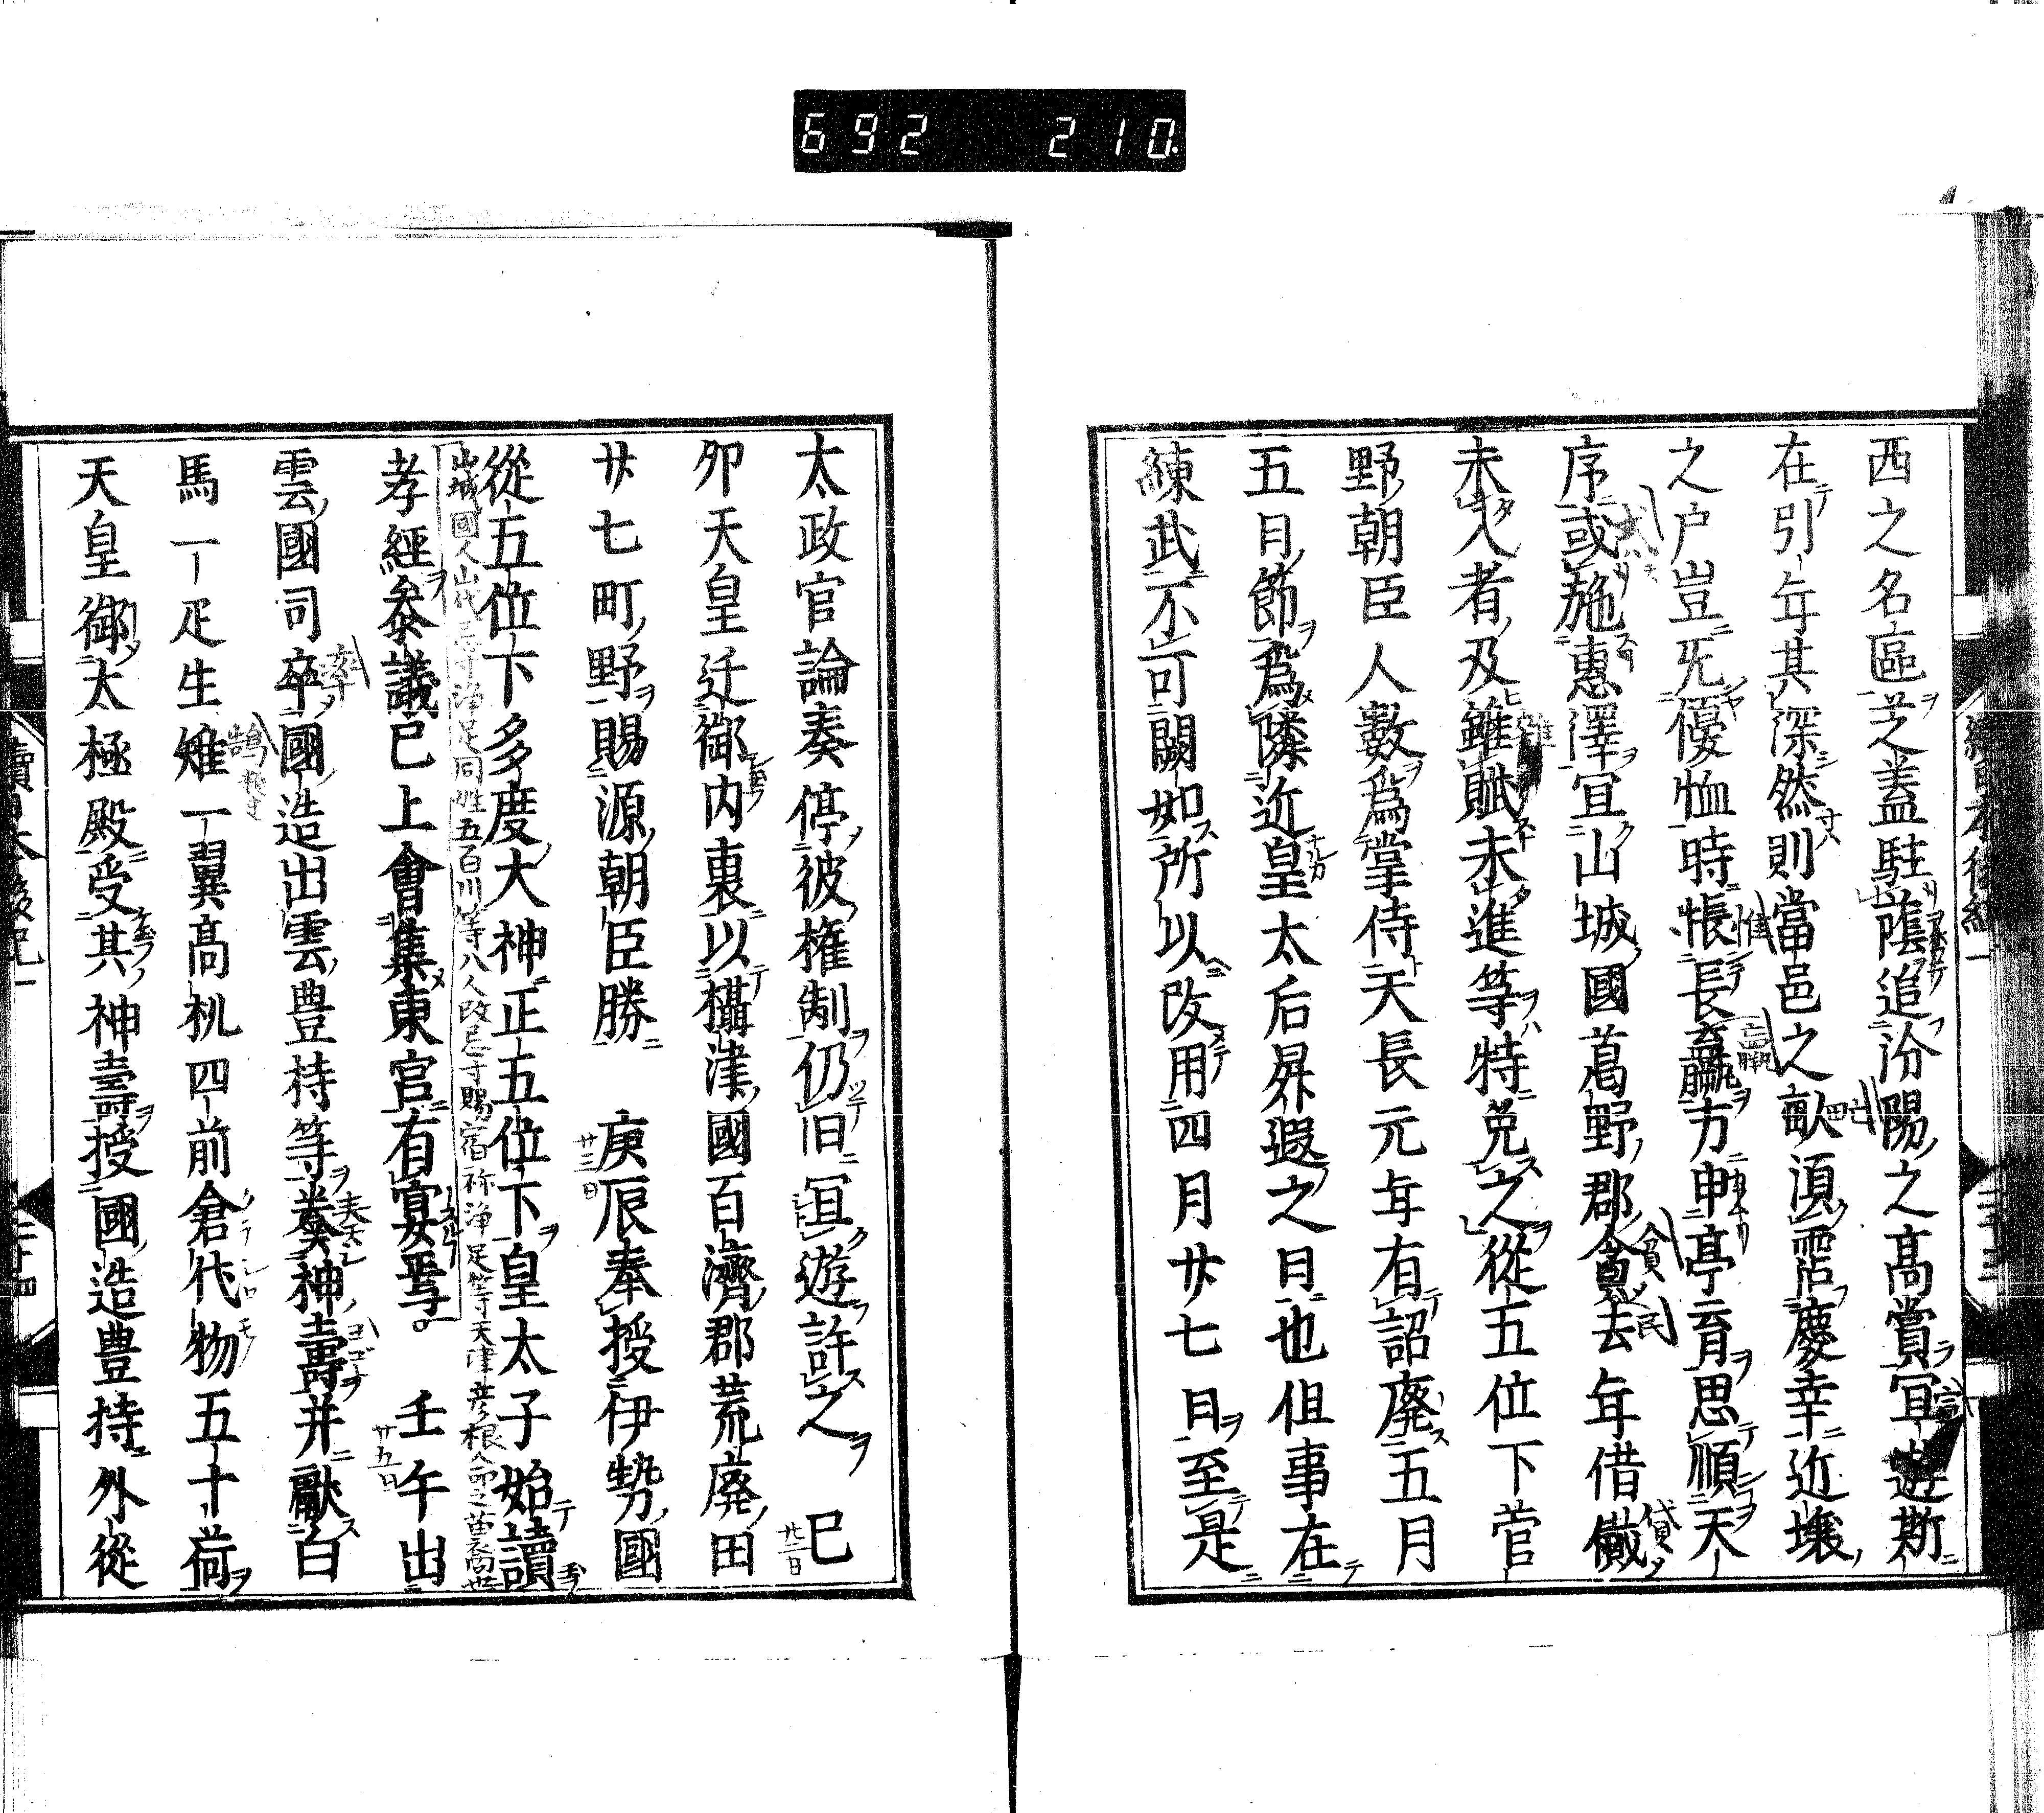 692 210
西之名區芝蓋駐蔭追汾陽之高賞宜遊斯
在引年其深然則當邑之畝湏霑慶幸近壌
之戸豈旡優恤時悵長嬴方申亭育思順天
序或施惠澤宜山城國葛野郡貧去年借儎
未入者及雖賦未進等特免之從五位下菅
野朝臣人數爲掌侍天長元年有詔廃五月
五月節爲隣近皇太后昇遐之日也伹事在
練武不可闕如所以改用四月廿七日至是
太政官論奏停彼権制仍旧冝遊許之 巳
廿二日
夘天皇迁御内裏以攝津國百濟郡荒廃田
廿七町野賜源朝臣勝 庚辰奉授伊勢國
廿三日
從五位下多度大神正五位下皇太子始讀
山城國人山代忌寸浄足同姓五百川等八人改忌寸賜宿祢浄足等天津彦根命之苗裔也
孝經叅議已上會集東宮有宴焉 壬午出
廿五日
雲國司卒國造出雲豊持等奏神壽并獻白
馬一疋生雉一翼高机四前倉代物五十荷
天皇御太極殿受其神壽授國造豊持外從